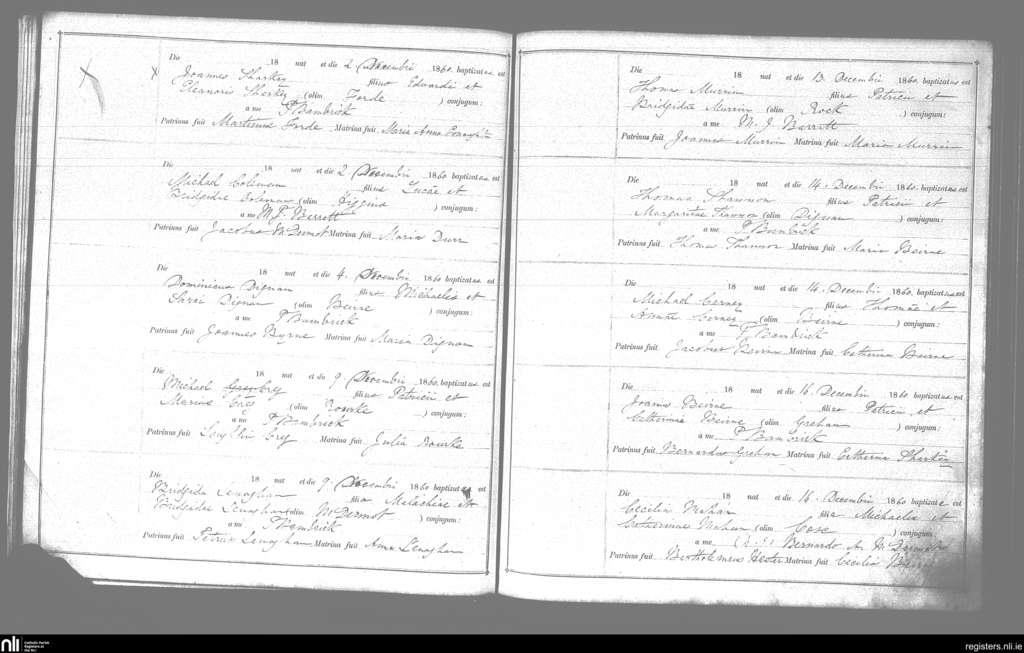 Die 18 nat et die 2 Decembris 1860. baptizatus est
Joannes Sharkey filius Edvardi et
Eleanoris Sharkey (olim Forde ) conjugum:
a me P Bambrick
Patrinus fuit Martinus Forde Matrina fuit Maria Anna
Die 18 nat et die 2 Decembris 1860 baptizatus est
Michael Coleman filius Lucae et
Bridgidae Coleman (olim Higgins ) conjugum:
a me M. J. Berrott
Patrinus fuit Jacobus McDermot Matrina fuit Maria Durr
Die 18 nat et die 4. Decembris 1860 baptizatus est
Dominicus Dignan filius Michaelis et
Sarai Dignan (olim Beirne ) conjugum:
a me P Bambrick
Patrinus fuit Joannes Byrne Matrina fuit Maria Dignan
Die 18 nat et die 9 Decembris 1860. baptizatus est
Michael filius Patricii et
Mariae (olim Rourke ) conjugum:
a me P Bambrick
Patrinus fuit Matrina fuit Julia Rourke
Die 18 nat et die 9. Decembris 1860 baptizata est
Bridgida Lenaghan filia Melachiae et
Bridgidae Lenaghan (olim McDermot ) conjugum:
a me P Bambrick
Patrinus fuit Petrus Lenaghan Matrina fuit Anna Lenaghan
Die 18 nat et die 13 Decembris 1860. baptizatus est
Thomas Murrin filius Patricii et
Bridgidae Murrin (olim Rock ) conjugum:
a me M. J. Berrott
Patrinus fuit Joannes Murrin Matrina fuit Maria Murrin
Die 18 nat et die 14. Decembris 1860. baptizatus est
Thomas Shannon filius Patricii et
Margaritae (olim Dignan ) conjugum:
a me P Bambrick
Patrinus fuit Thomas Matrina fuit Maria Beirne
Die 18 nat et die 14. Decembris 1860. baptizatus est
Michael Cerney filius Thomae et
Annae Cerney (olim Beirne ) conjugum:
a me P Bambrick
Patrinus fuit Jacobus Beirne Matrina fuit Catherina Beirne
Die 18 nat et die 16. Decembris 1860 baptizatus est
Joannes Beirne filius Patricii et
Catherinae Beirne (olim Grehan ) conjugum:
a me P Bambrick
Patrinus fuit Bernardus Grehan Matrina fuit Catherina Sharkey
Die 18 nat et die 16. Decembris 1860 baptizata est
Cecilia Mahan filia Michaelis et
Catherinae Mahan (olim Coxe ) conjugum:
a me Bernardo
Patrinus fuit Bartholomeus Hester Matrina fuit Cecilia
nli Catholic Parish Registers at the NLI registers.nli.ie